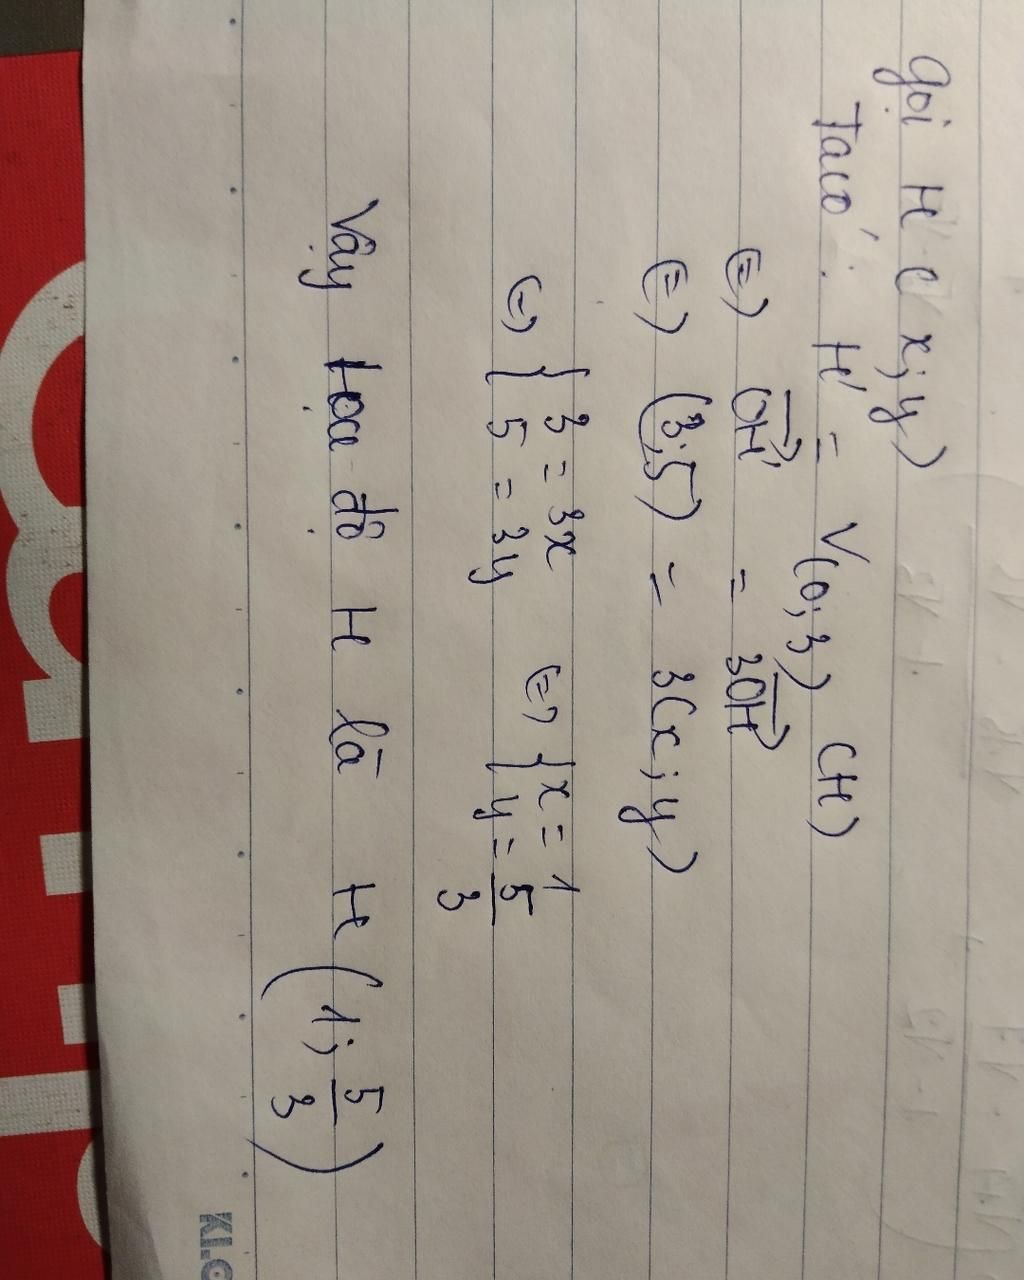 gọi H' ( x; y )
Ta có : H' = V(0; 3) (H)
(=) OH' = 3OH
(=) (3;5) = 3(x; y)
(=) { 3 = 3x 5 = 3y (=) { x = 1 y = 5/3
Vậy tọa độ H là H ( 1; 5/3 )